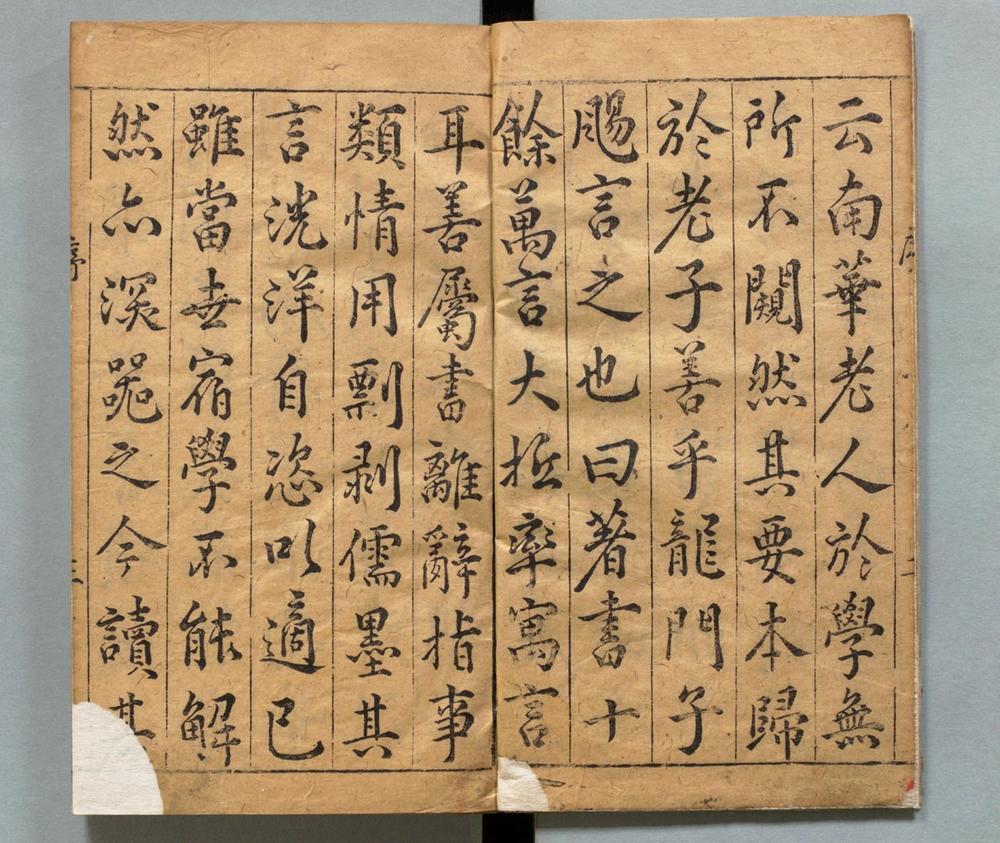 云南華老人於學無
所不闚然其要本歸
於老子善乎龍門子
颺言之也曰著書十
餘萬言大抵率寓言
耳善屬書離辭指事
類情用剽剥儒墨其
言洸洋自恣以適己
雖當世宿學不能解
然亦深
之今讀其
序
三